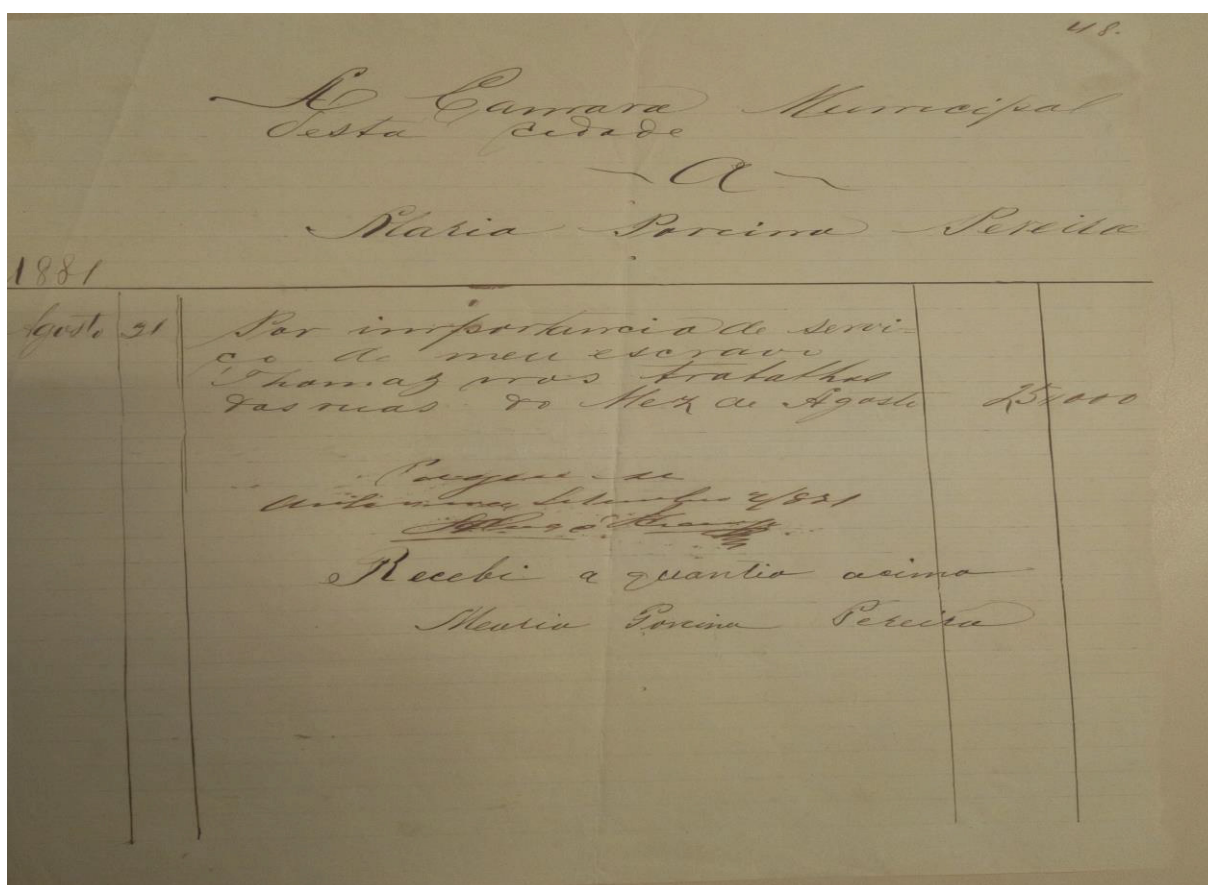 48.
A Camara Municipal
desta cidade
A
Maria Porcina Pereira
1881
Agosto 31 Por importancia de servi-
ço de meu escravo
Thomaz nos trabalhos
das ruas do Mez de Agosto 25$000
Pague-se
Setembro 2/881
Recebi a quantia acima
Maria Porcina Pereira